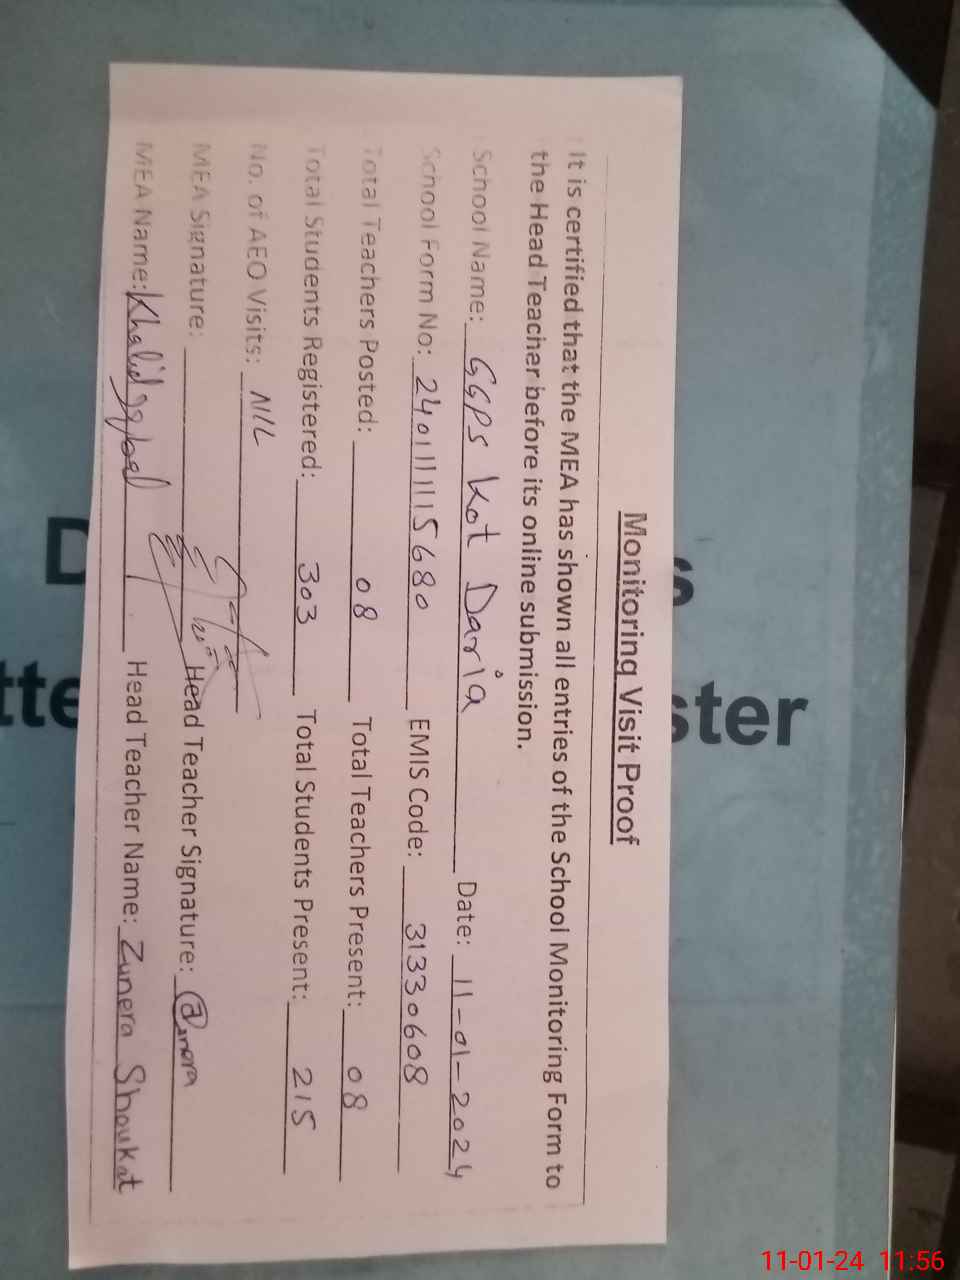 Monitoring Visit Proof
It is certified that the MEA has shown all entries of the School Monitoring Form to
the Head Teacher before its online submission.
School Name: GGPS Kot Daria Date: 11-01-2024
School Form No: 2401111115680 EMIS Code: 31330608
Total Teachers Posted: 08 Total Teachers Present: 08
Total Students Registered: 303 Total Students Present: 215
No. of AEO Visits: NIL
MEA Signature: Head Teacher Signature:
MEA Name: Khalid Iqbal Head Teacher Name: Zunera Shoukat
ster
tte
11-01-24 11:56